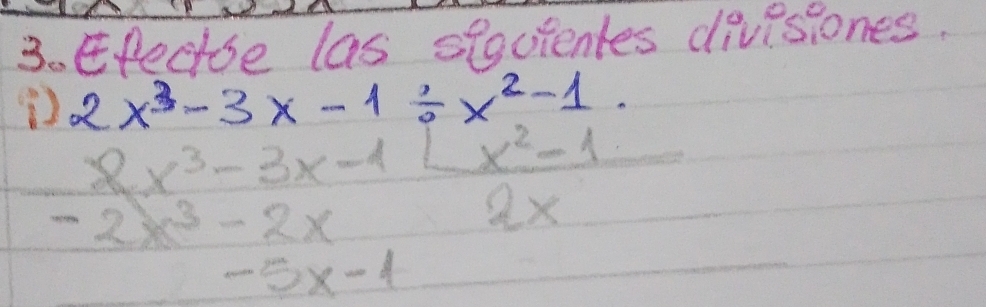 3. Efectúe las siguientes divisiones.
i) 2x³ - 3x - 1 ÷ x² - 1.
2x³ - 3x - 1 | x² - 1
- 2x³ - 2x 2x
- 5x - 1